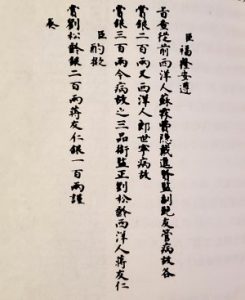 臣福隆安遵
旨查從前西洋人蘇霖費隱戴進賢監副鮑友管病故各
賞銀二百兩又西洋人郎世寧病故
賞銀三百兩今病故之三品銜監正劉松齡西洋人蔣友仁
臣酌擬
賞劉松齡銀二百兩蔣友仁銀一百兩謹
奏